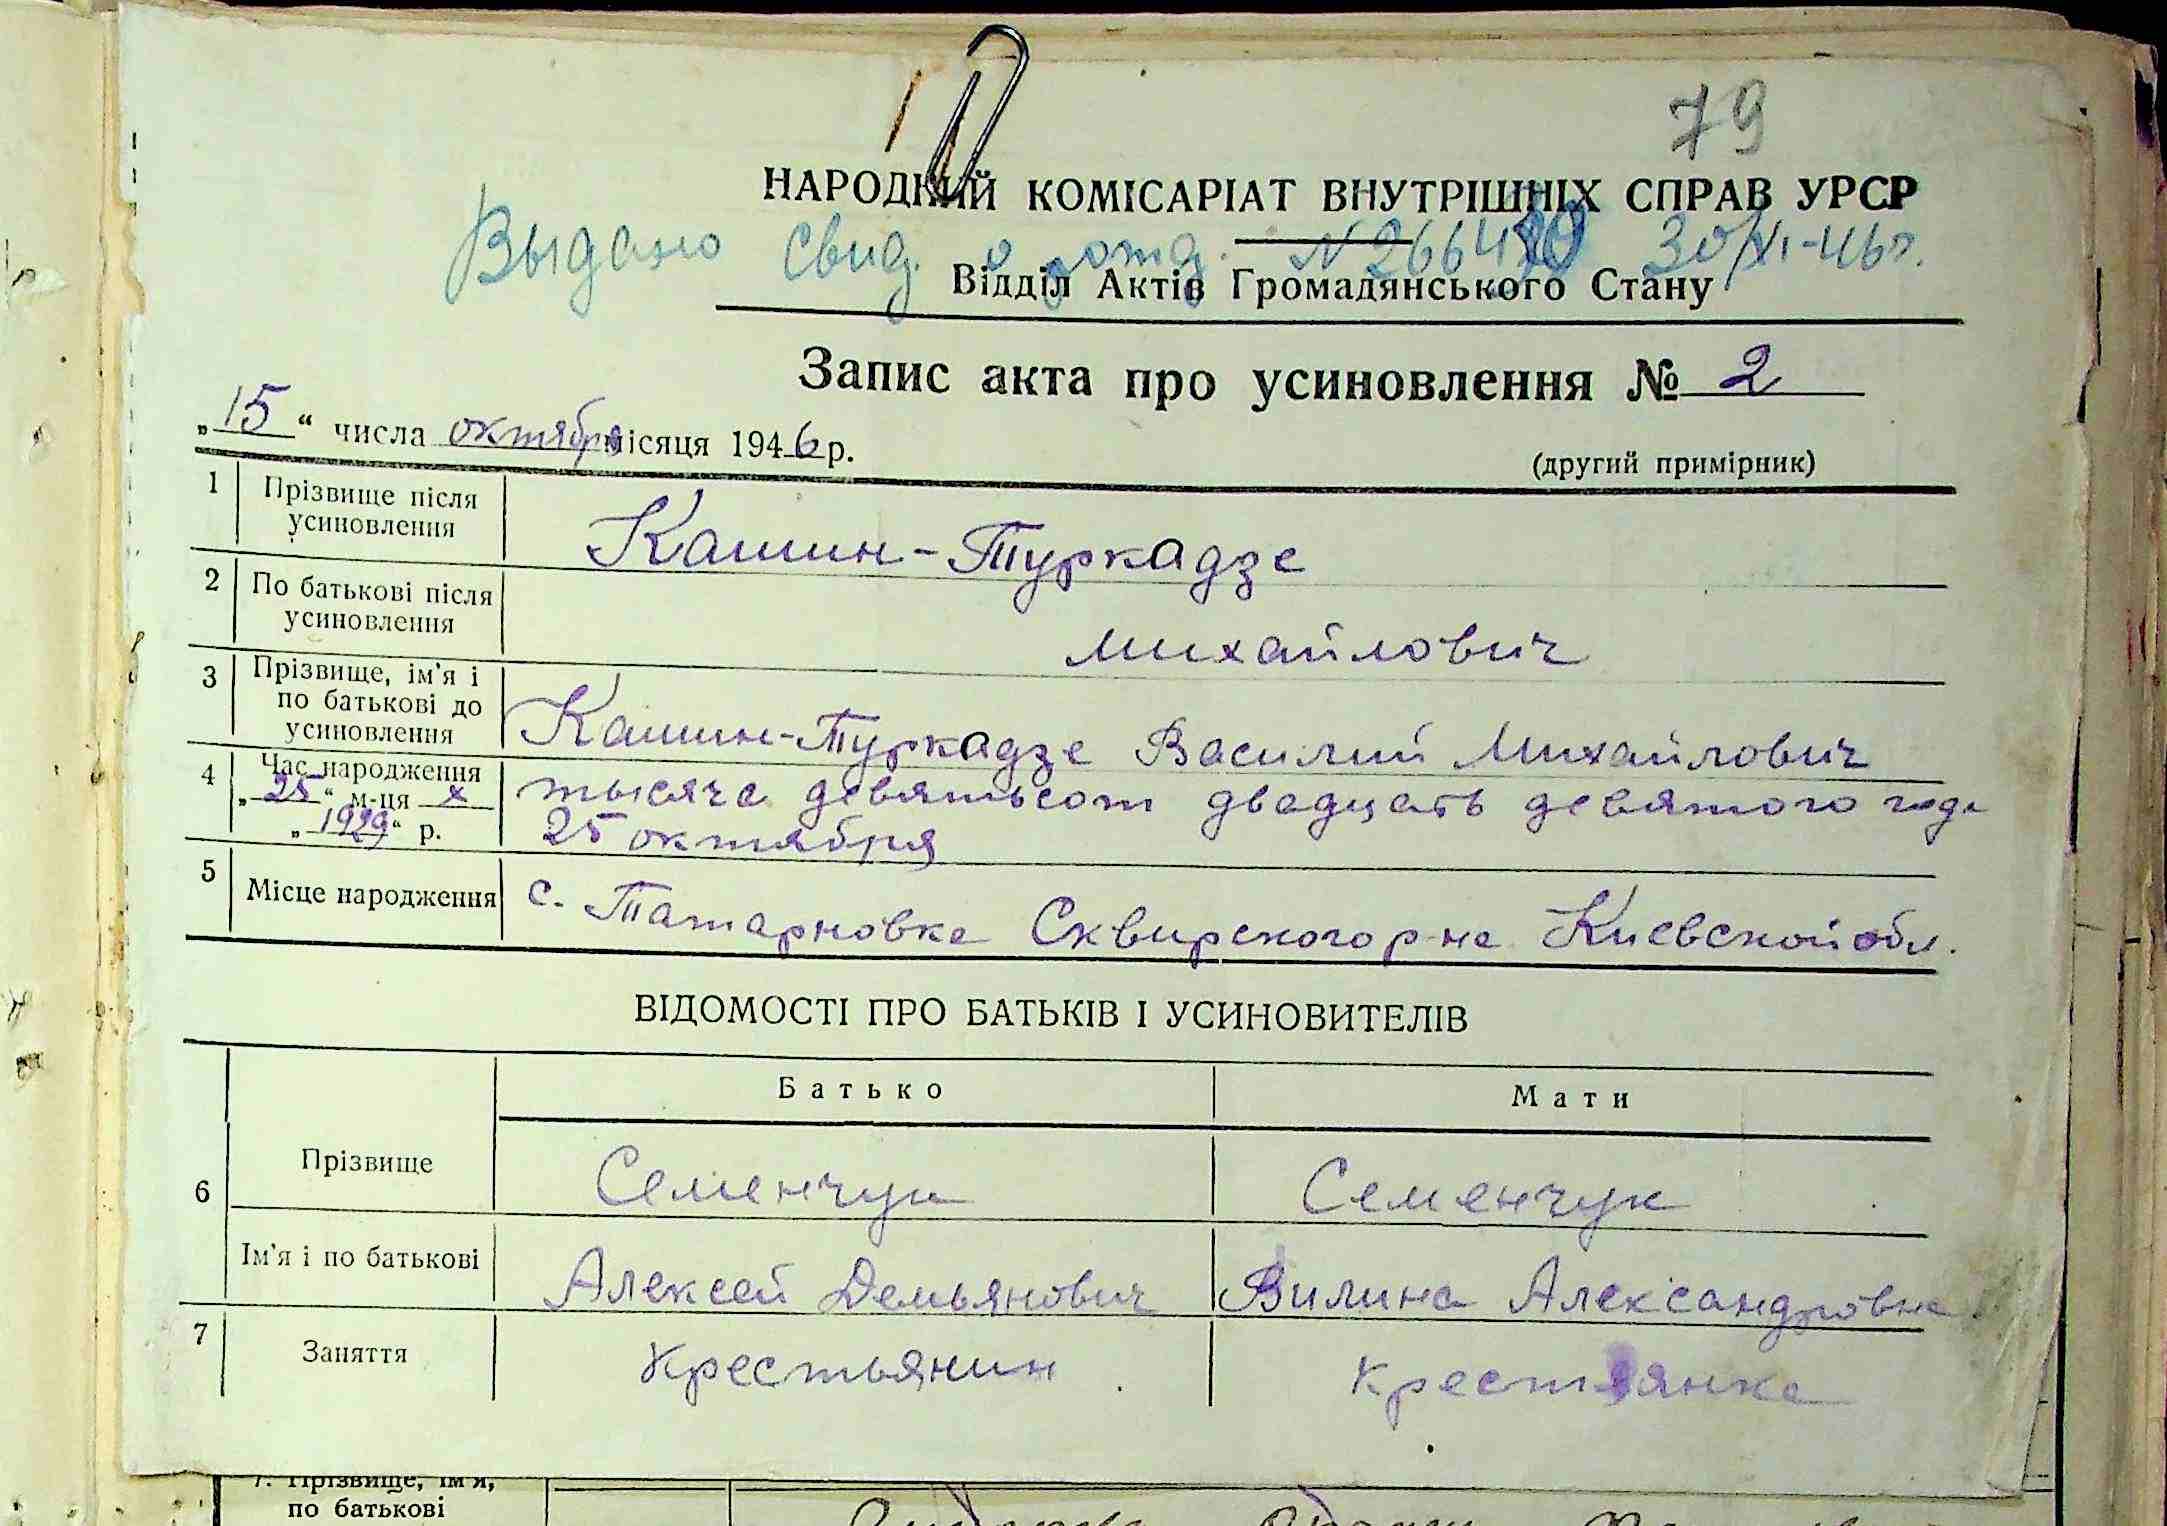 79
НАРОДНИЙ КОМІСАРІАТ ВНУТРІШНІХ СПРАВ УРСР
Выдано свид. о рожд. N 2664 30/XI-46г.
Відділ Актів Громадянського Стану
Запис акта про усиновлення № 2
„15“ числа октября місяця 1946 р.
(другий примірник)
1 Прізвище після усиновлення Кашин-Туркадзе
2 По батькові після усиновлення Михайлович
3 Прізвище, ім'я і по батькові до усиновлення Кашин-Туркадзе Василий Михайлович
4 Час народження „25“ м-ця X „1929“ р. тысяча девятьсот двадцать девятого года
25 октября
5 Місце народження с. Татарновка Сквирского р-на Киевской обл.
ВІДОМОСТІ ПРО БАТЬКІВ І УСИНОВИТЕЛІВ
Батько Мати
6 Прізвище Семенчук Семенчук
Ім'я і по батькові Алексей Демьянович Вилина Александровна
7 Заняття Крестьянин Крестянка
7. Прізвище, ім'я,
по батькові